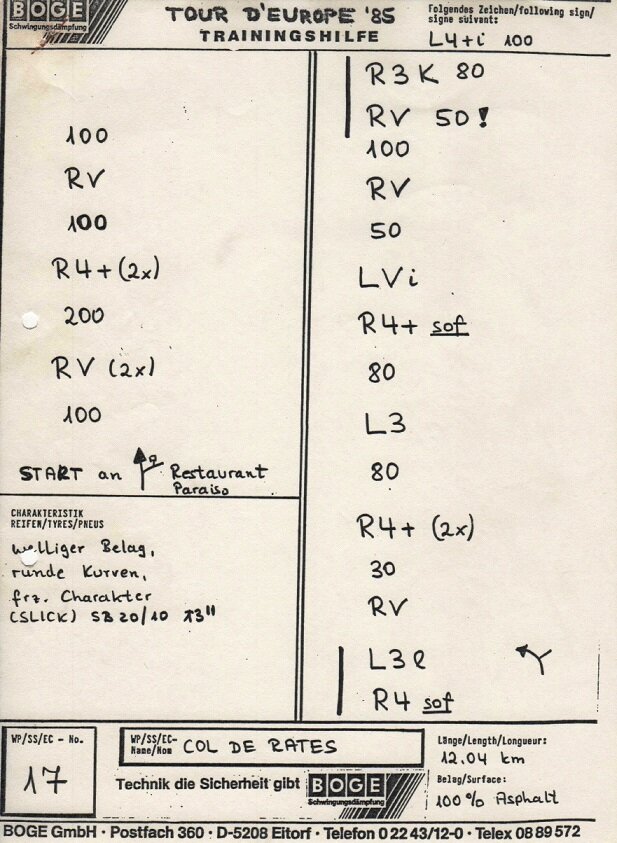 BOGE
Schwingungsdämpfung
TOUR D'EUROPE '85
TRAININGSHILFE
Folgendes Zeichen/following sign/
signe suivant:
L4+i 100
100
RV
100
R4+(2x)
200
RV (2x)
100
START an Restaurant
Paraiso
CHARAKTERISTIK
REIFEN/TYRES/PNEUS
welliger Belag,
runde Kurven,
frz. Charakter
(SLICK) SB 20/10 13"
R3K 80
RV 50!
100
RV
50
LVi
R4+ sof
80
L3
80
R4+ (2x)
30
RV
L3l
R4 sof
WP/SS/EC - No.
17
WP/SS/EC-
Name/Nom COL DE RATES
Technik die Sicherheit gibt BOGE
Schwingungsdämpfung
Länge/Length/Longueur:
12.04 km
Belag/Surface:
100% Asphalt
BOGE GmbH · Postfach 360 · D-5208 Eitorf · Telefon 0 22 43/12-0 · Telex 08 89 572